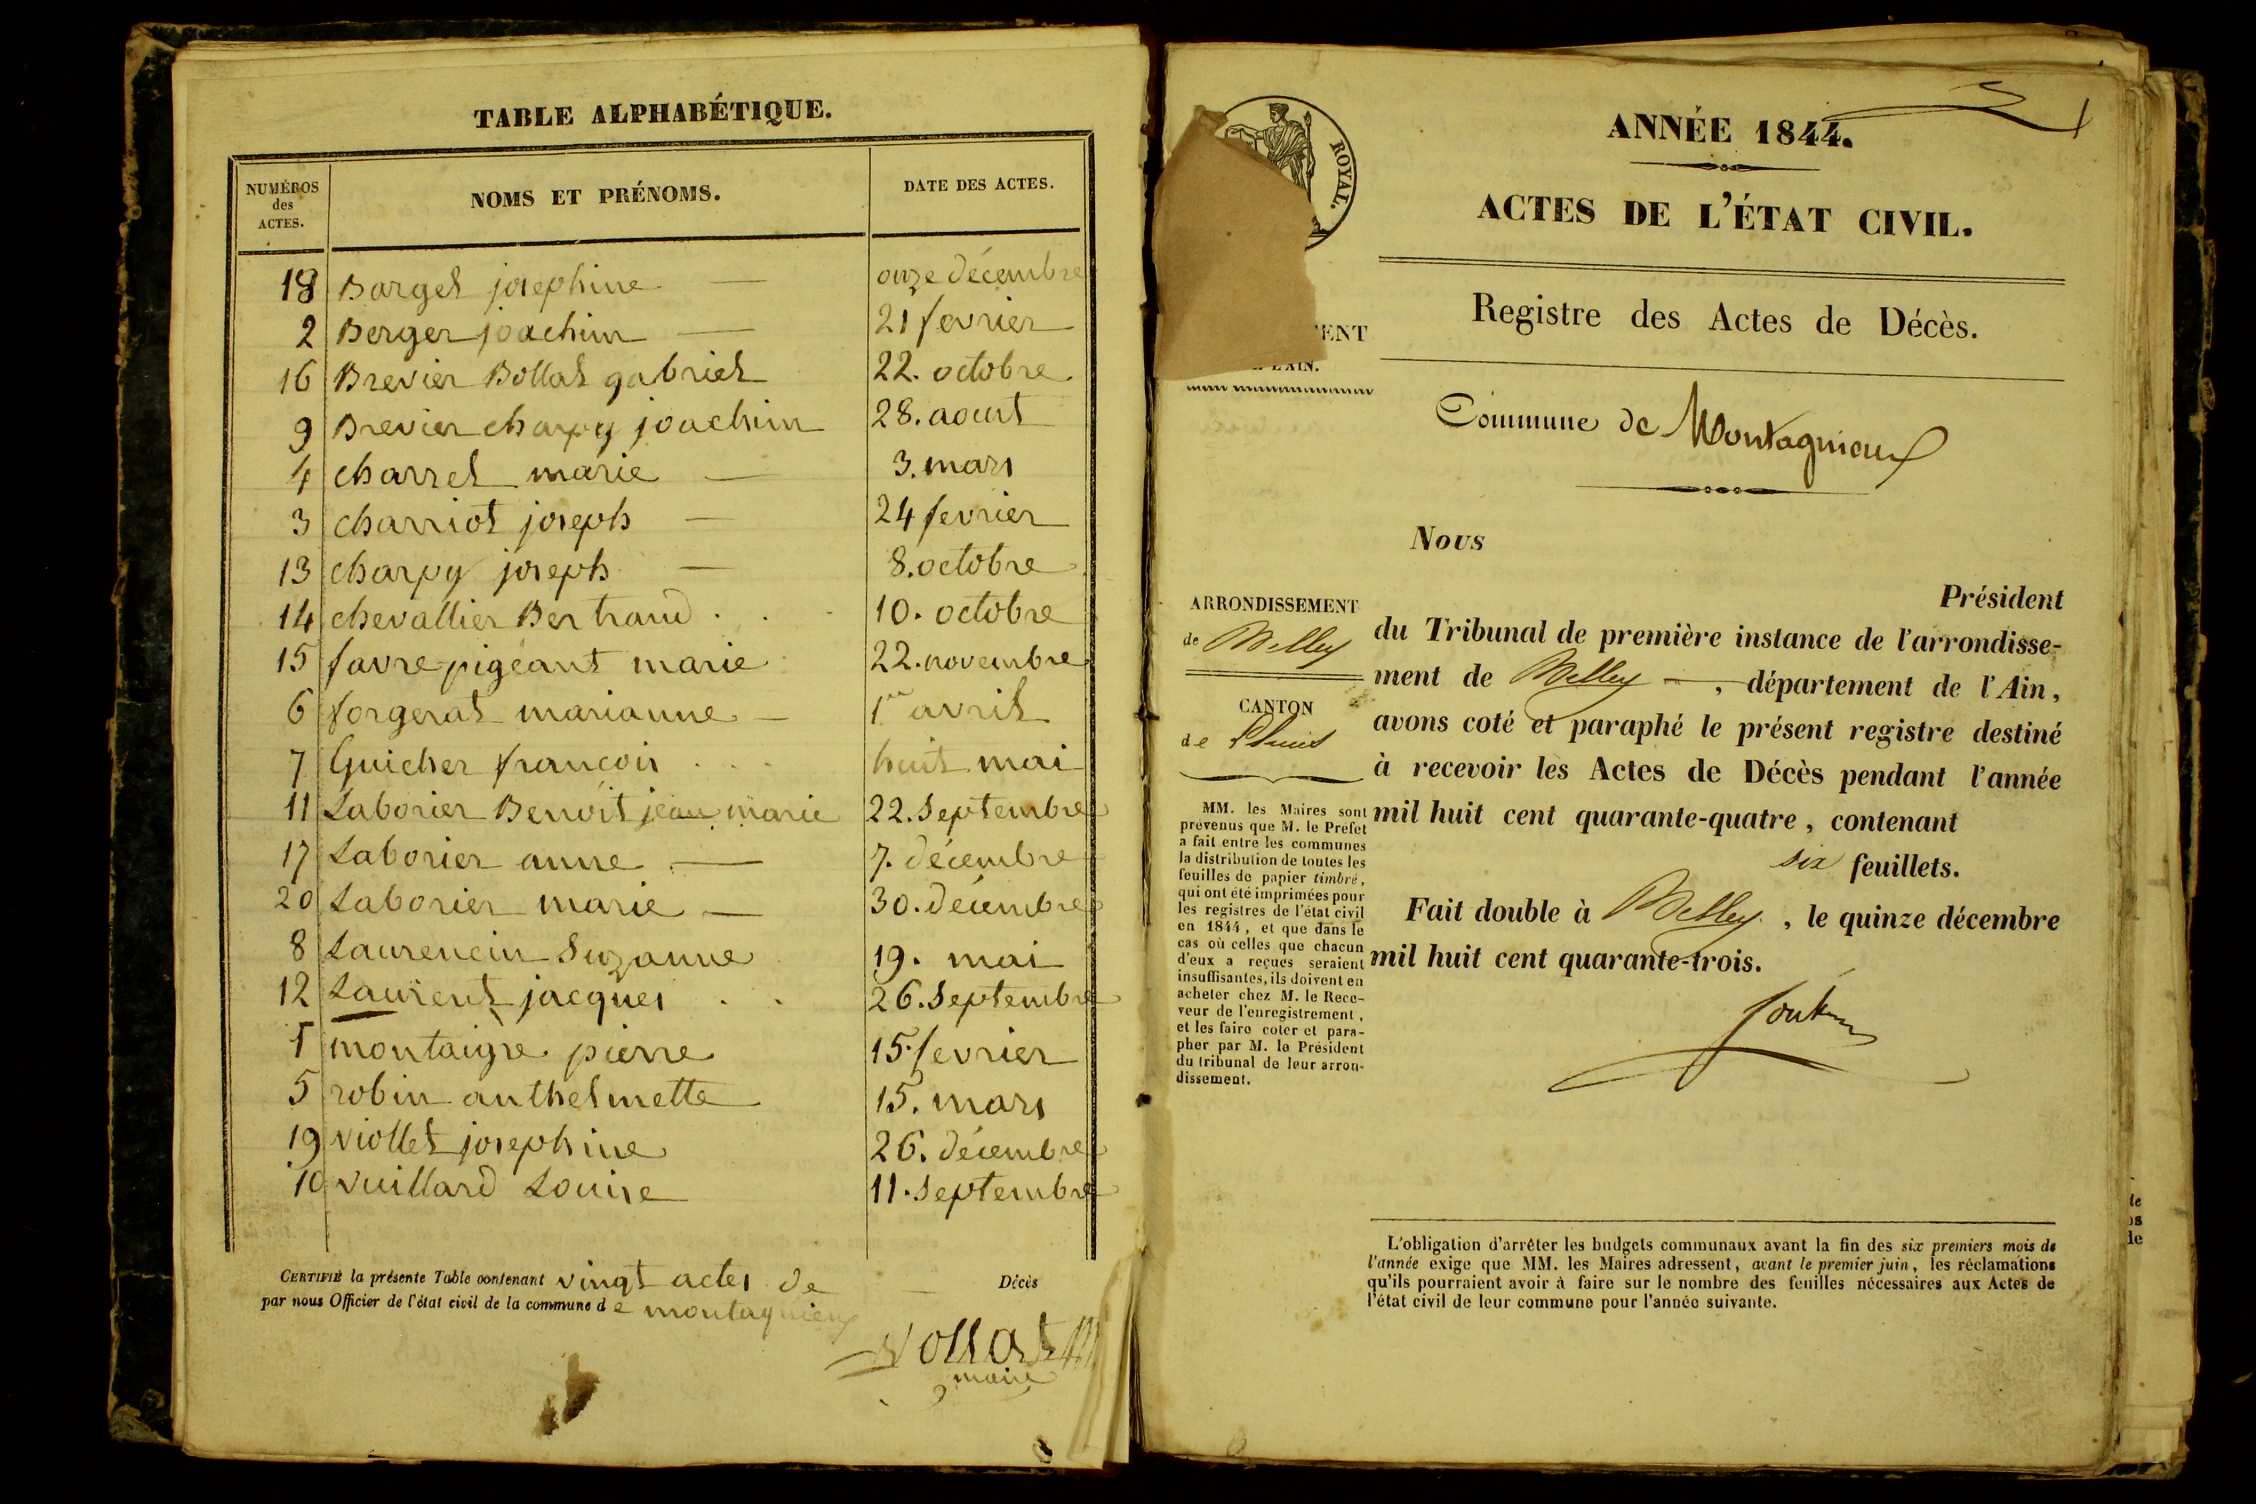 TABLE ALPHABÉTIQUE.
NUMÉROS des ACTES. NOMS ET PRÉNOMS. DATE DES ACTES.
18 Barget josephine onze décembre
2 Berger joachim 21 fevrier
16 Brevier Bollat gabriel 22. octobre
9 Brevier charpy joachim 28. aout
4 charret marie 3. mars
3 charriot joseph 24 fevrier
13 charpy joseph 8. octobre
14 chevallier Bertrand 10. octobre
15 favre pigeant marie 22. novembre
6 forgerat marianne 1er avril
7 Guicher françois huit mai
11 Laborier Benoit jean marie 22. Septembre
17 Laborier anne 7. décembre
20 Laborier marie 30. décembre
8 Laurencin Suzanne 19. mai
12 Laurent jacques 26. Septembre
1 montaigre pierre 15. fevrier
5 robin anthelmette 15. mars
19 viollet josephine 26. décembre
10 vuillard Louise 11. Septembre
CERTIFIÉ la présente Table contenant vingt actes de Décès
par nous Officier de l'état civil de la commune de montagnieux
maire
ROYAL.
ENT
L'AIN.
ARRONDISSEMENT
de Belley
CANTON
de Lhuis
MM. les Maires sont
prévenus que M. le Préfet
a fait entre les communes
la distribution de toutes les
feuilles de papier timbré,
qui ont été imprimées pour
les registres de l'état civil
en 1844, et que dans le
cas où celles que chacun
d'eux a reçues seraient
insuffisantes, ils doivent en
acheter chez M. le Rece-
veur de l'enregistrement,
et les faire coter et para-
pher par M. le Président
du tribunal de leur arron-
dissement.
ANNÉE 1844.
ACTES DE L'ÉTAT CIVIL.
Registre des Actes de Décès.
Commune de Montagnieux
Nous
Président
du Tribunal de première instance de l'arrondisse-
ment de Belley, département de l'Ain,
avons coté et paraphé le présent registre destiné
à recevoir les Actes de Décès pendant l'année
mil huit cent quarante-quatre, contenant
six feuillets.
Fait double à Belley, le quinze décembre
mil huit cent quarante-trois.
L'obligation d'arrêter les budgets communaux avant la fin des six premiers mois de
l'année exige que MM. les Maires adressent, avant le premier juin, les réclamations
qu'ils pourraient avoir à faire sur le nombre des feuilles nécessaires aux Actes de
l'état civil de leur commune pour l'année suivante.